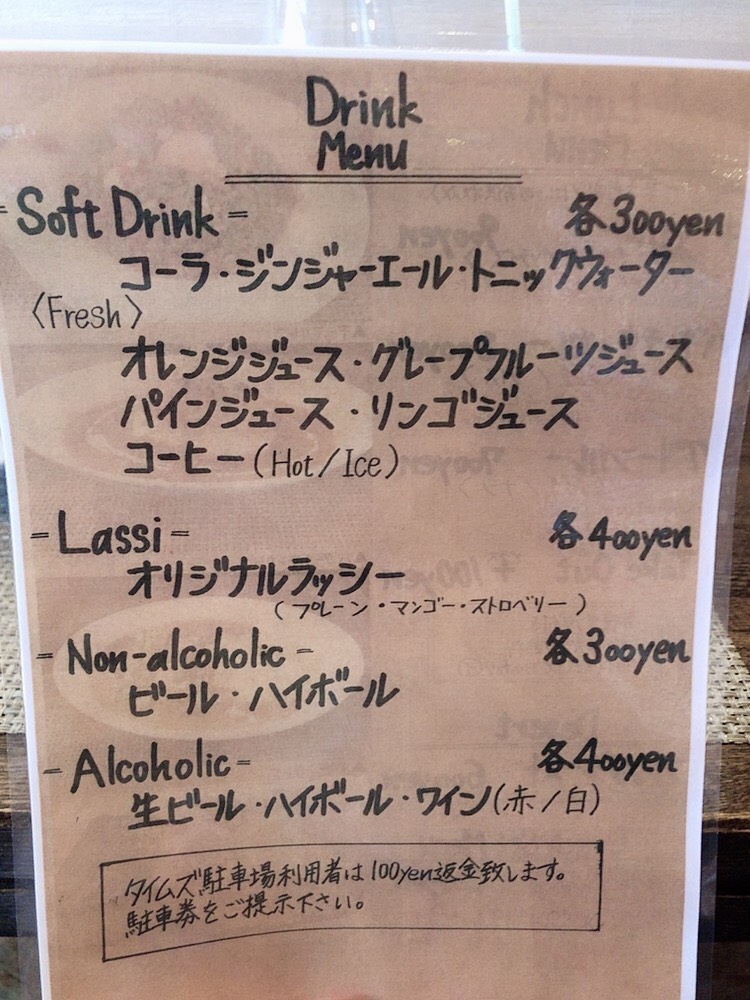 Drink
Menu
- Soft Drink - 各300yen
コーラ・ジンジャーエール・トニックウォーター
〈Fresh〉
オレンジジュース・グレープフルーツジュース
パインジュース・リンゴジュース
コーヒー(Hot/Ice)
- Lassi - 各400yen
オリジナルラッシー
(プレーン・マンゴー・ストロベリー)
- Non-alcoholic - 各300yen
ビール・ハイボール
- Alcoholic - 各400yen
生ビール・ハイボール・ワイン(赤/白)
タイムズ駐車場利用者は100yen返金致します。
駐車券をご提示下さい。